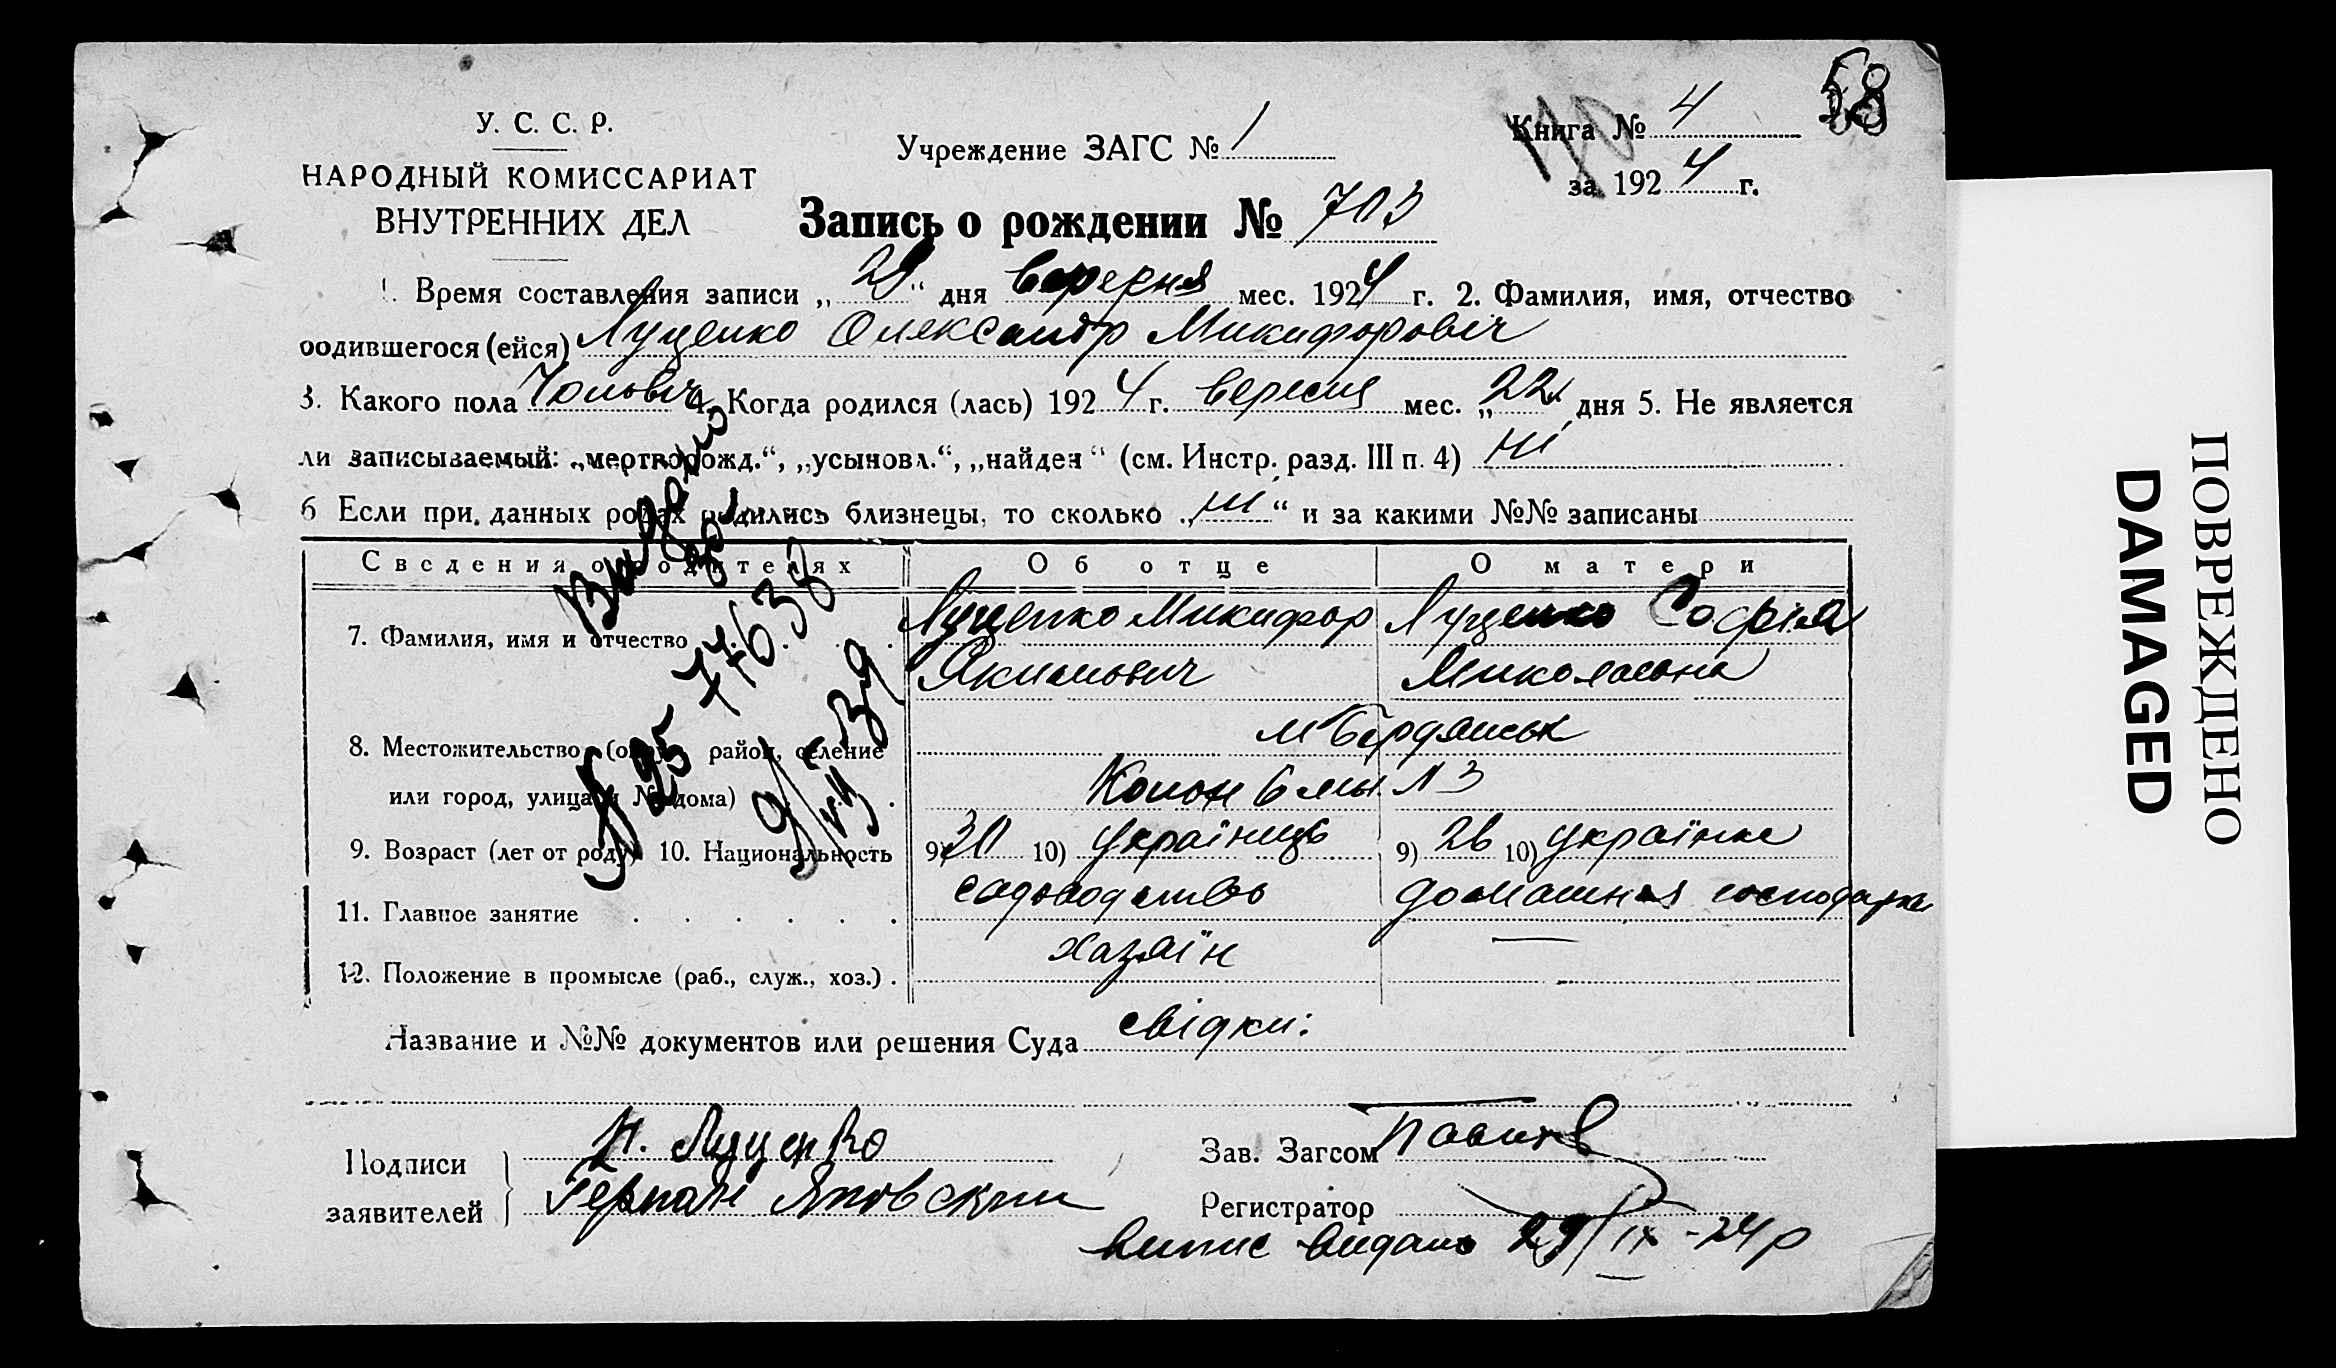 58
У. С. С. Р.
НАРОДНЫЙ КОМИССАРИАТ
ВНУТРЕННИХ ДЕЛ
Учреждение ЗАГС № 1
Книга № 4
за 1924 г.
Запись о рождении № 703
1. Время составления записи „29“ дня вересня мес. 1924 г. 2. Фамилия, имя, отчество
родившегося (ейся) Луценко Олександр Микифорович
3. Какого пола Чоловіч 4. Когда родился (лась) 1924 г. вересня мес. „22“ дня 5. Не является
ли записываемый: „мертворожд.“, „усыновл.“, „найден“ (см. Инстр. разд. III п. 4) ні
6 Если при данных родах родились близнецы, то сколько „ні“ и за какими №№ записаны
Сведения о родителях Об отце О матери
7. Фамилия, имя и отчество Луценко Микифор Луценко Софія
Якимович Миколаевна
8. Местожительство (округ, район, селение м Бердянськ
или город, улица и № дома)
9. Возраст (лет от роду) 10. Национальность 9) 30 10) Українець 9) 26 10) українка
11. Главное занятие садоводство домашня господарка
12. Положение в промысле (раб., служ., хоз.) хазяїн —
Название и №№ документов или решения Суда свідки:
Подписи
заявителей
Н. Луценко
Герман Яновский
Зав. Загсом
Регистратор
випис видано 29/IX-24р
Видано
9/VII-39
ПОВРЕЖДЕНО
DAMAGED